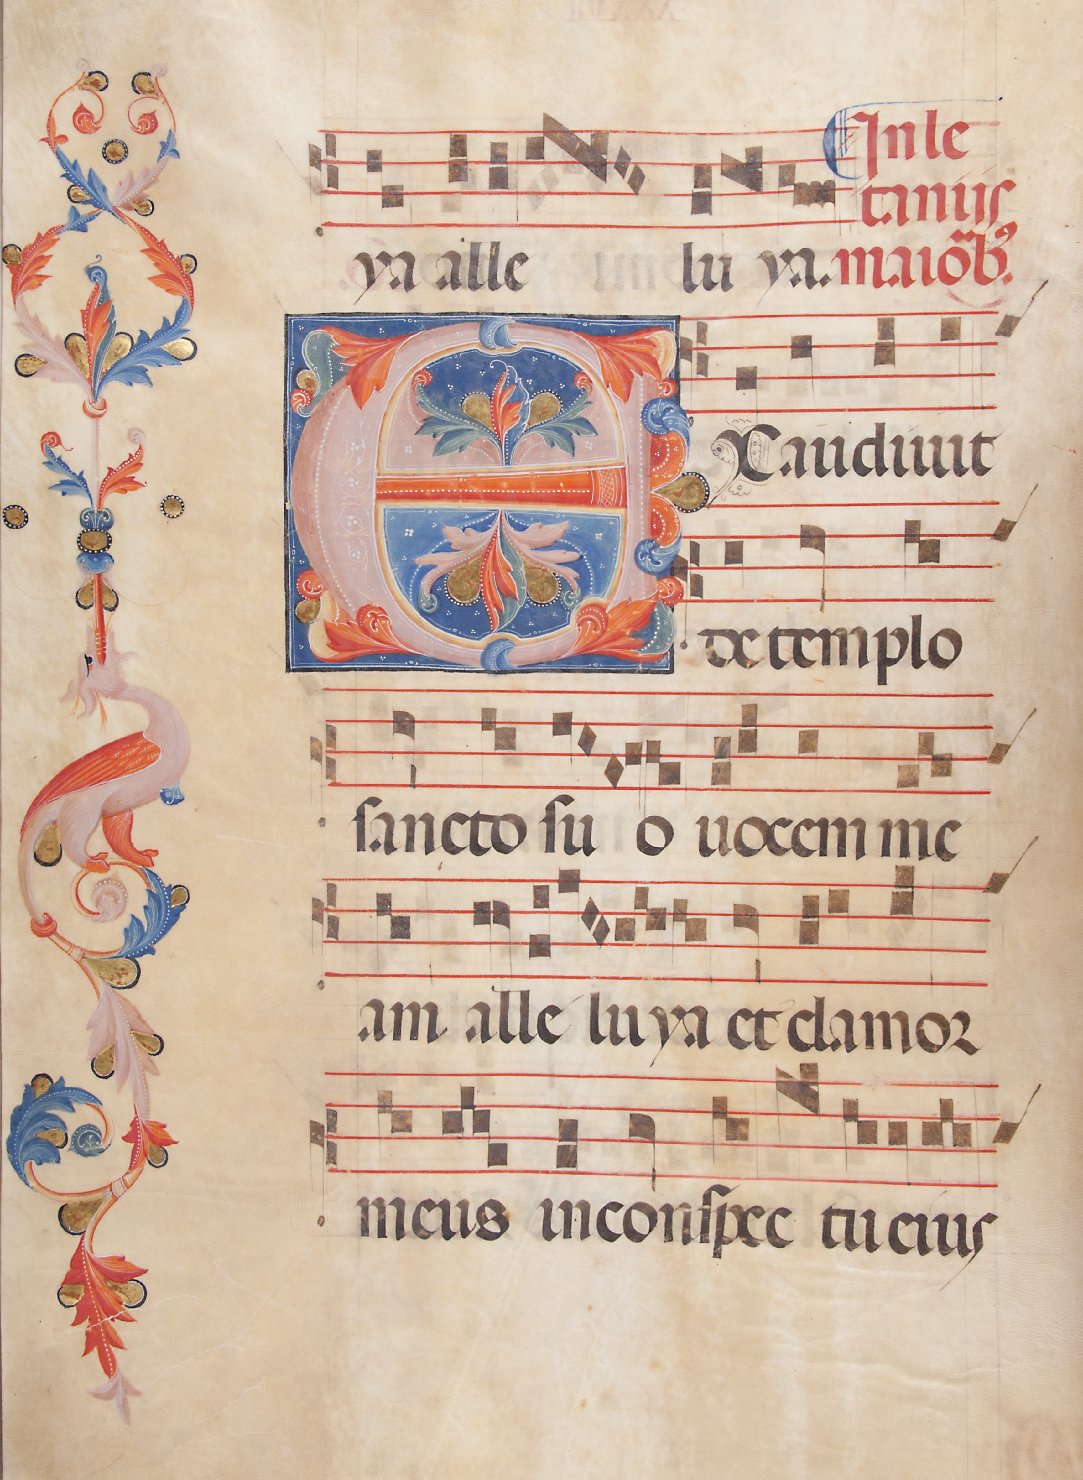 In le
taniis
ya alle lu ya. maioꝝb9.
EXaudiuit
de templo
sancto su o uocem me
am alle lu ya et clamor
meus in conspec tu eius